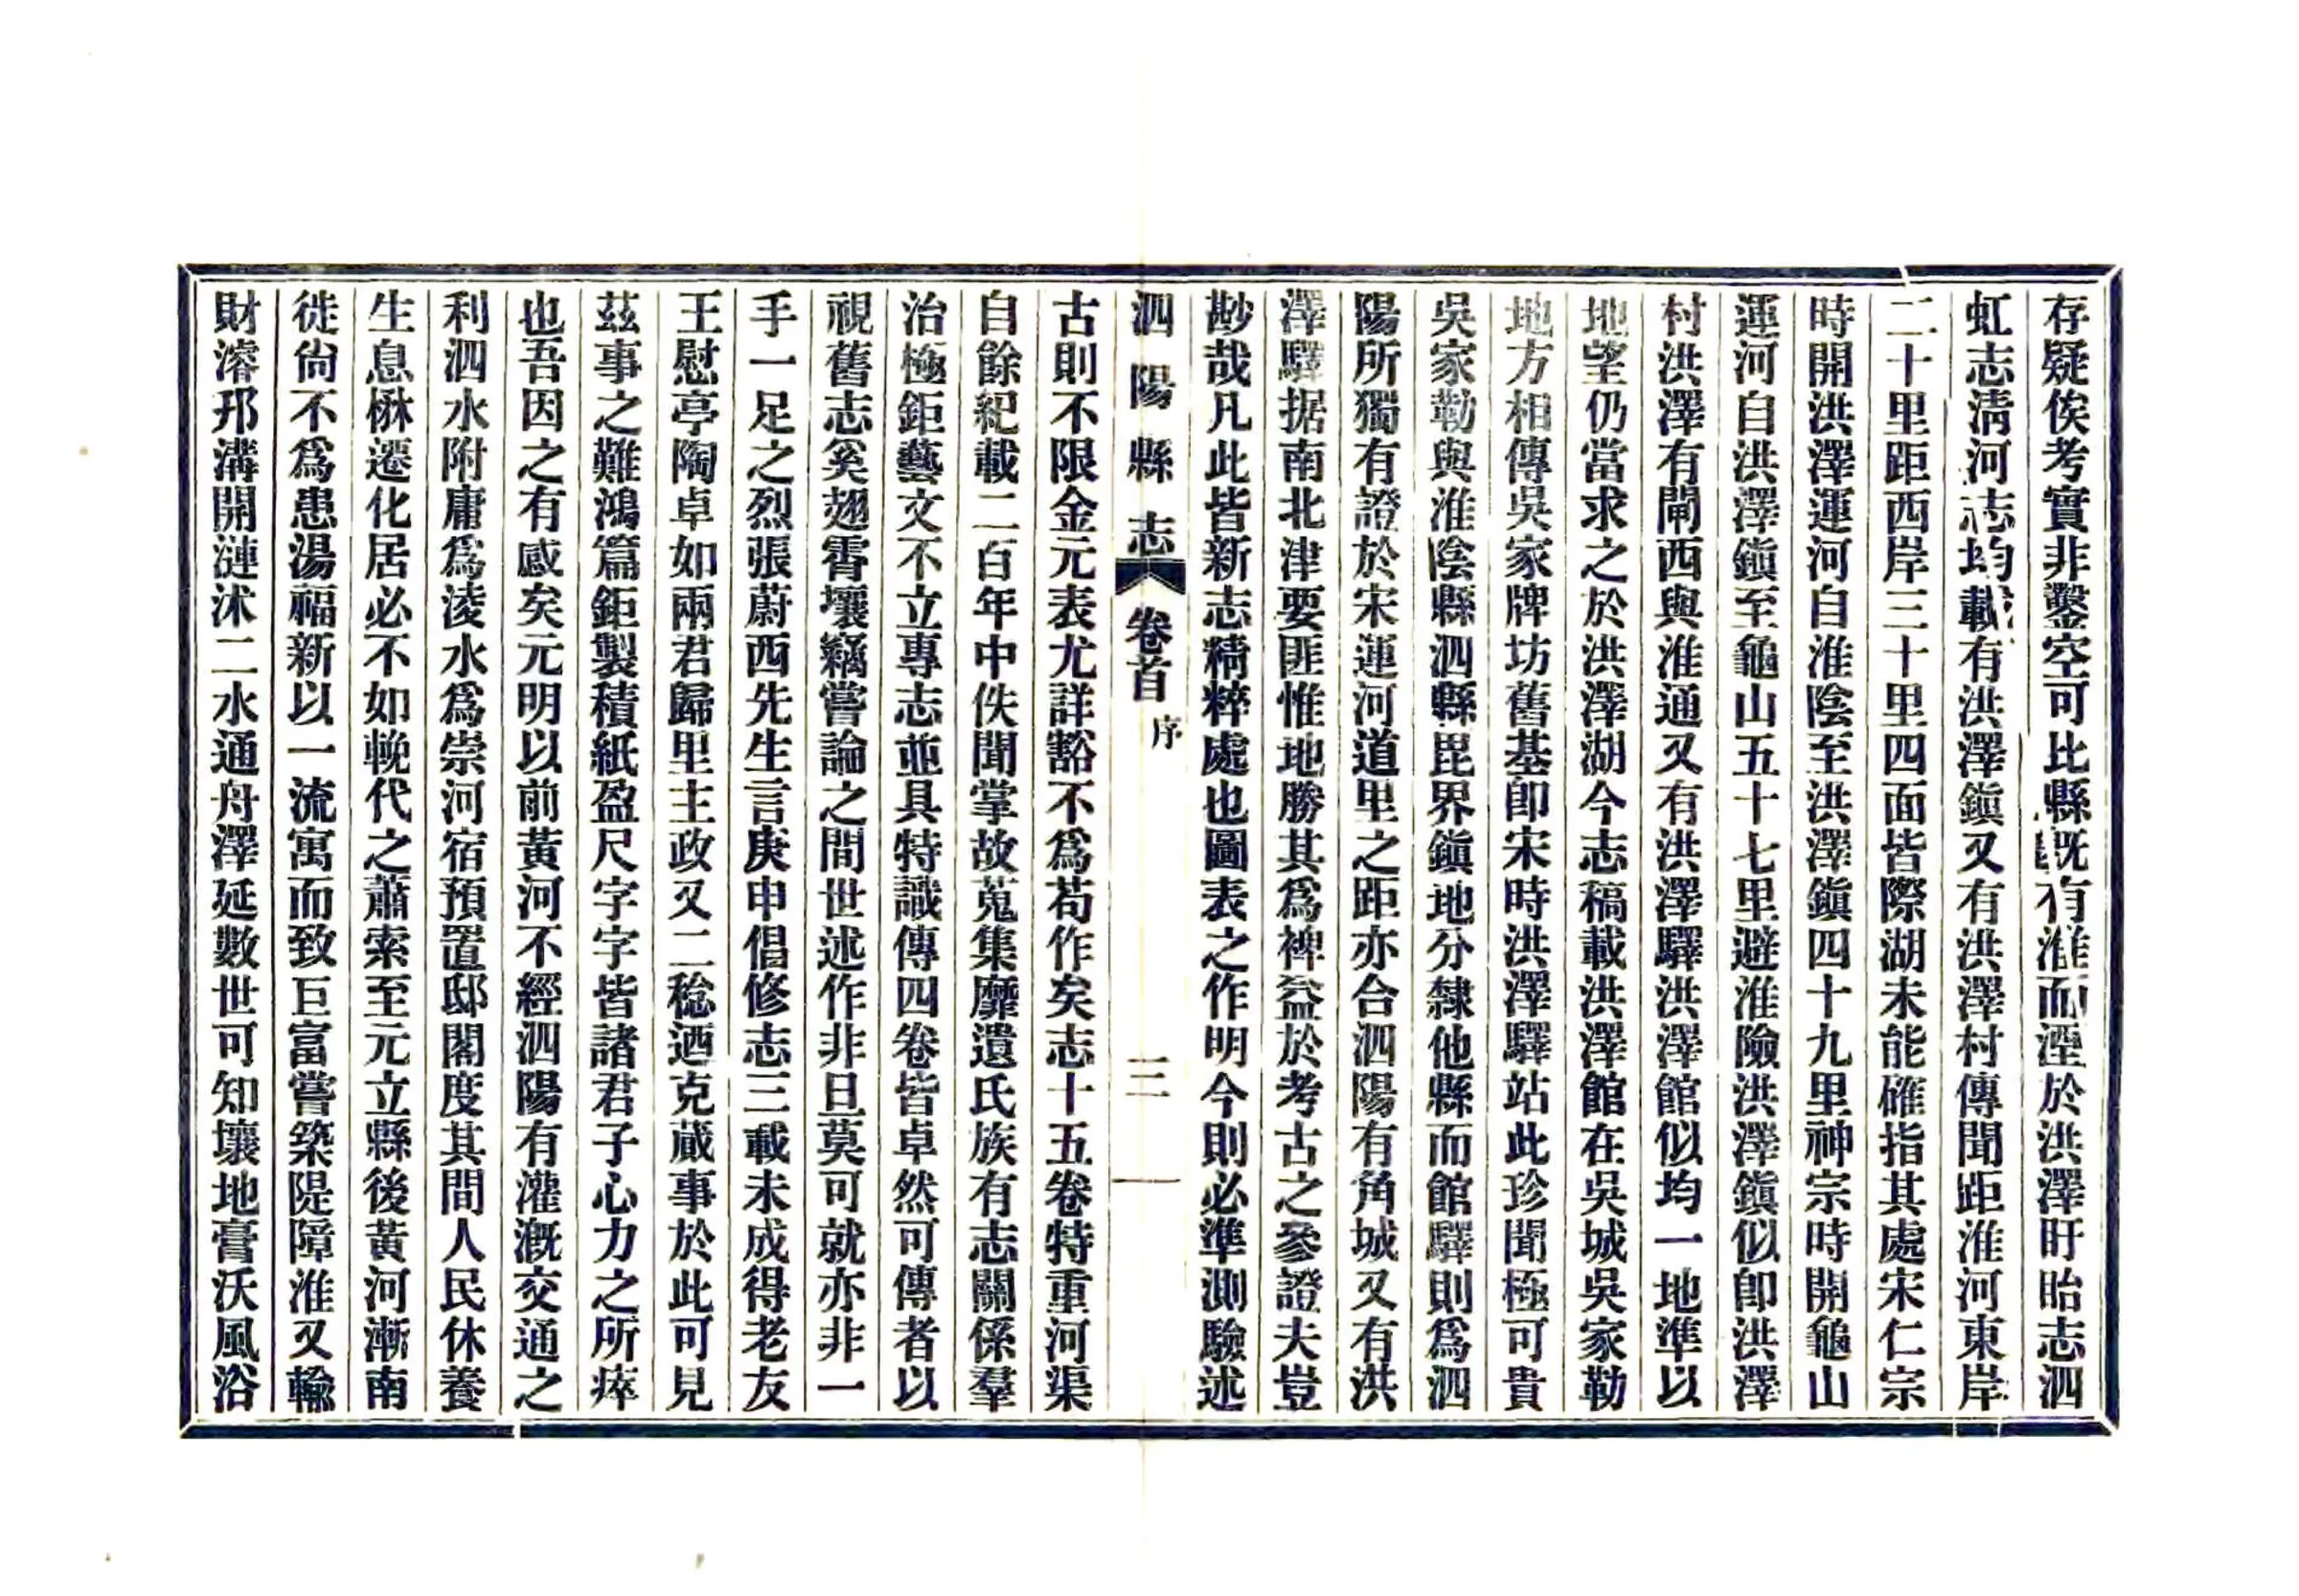 存疑俟考實非鑿空可比縣既有淮而湮於洪澤盱眙志泗
虹志淸河志均載有洪澤鎭又有洪澤村傳聞距淮河東岸
二十里距西岸三十里四面皆際湖未能確指其處宋仁宗
時開洪澤運河自淮陰至洪澤鎭四十九里神宗時開龜山
運河自洪澤鎭至龜山五十七里避淮險洪澤鎭似卽洪澤
村洪澤有閘西與淮通又有洪澤驛洪澤館似均一地準以
地望仍當求之於洪澤湖今志稿載洪澤館在吳城吳家勒
地方相傳吳家牌坊舊基卽宋時洪澤驛站此珍聞極可貴
吳家勒與淮陰縣泗縣毘界鎭地分隸他縣而館驛則爲泗
陽所獨有證於宋運河道里之距亦合泗陽有角城又有洪
澤驛据南北津要匪惟地勝其爲裨益於考古之參證夫豈
尠哉凡此皆新志精粹處也圖表之作明今則必準測驗述
泗陽縣志 卷首 序 三
古則不限金元表尤詳豁不爲苟作矣志十五卷特重河渠
自餘紀載二百年中佚聞掌故蒐集靡遺氏族有志關係羣
治極鉅藝文不立專志並具特識傳四卷皆卓然可傳者以
視舊志奚翅霄壤竊嘗論之間世述作非旦莫可就亦非一
手一足之烈張蔚西先生言庚申倡修志三載未成得老友
王慰亭陶卓如兩君歸里主政又二稔迺克蕆事於此可見
茲事之難鴻篇鉅製積紙盈尺字字皆諸君子心力之所瘁
也吾因之有感矣元明以前黃河不經泗陽有灌漑交通之
利泗水附庸爲淩水爲崇河宿預置邸閣度其間人民休養
生息楙遷化居必不如輓代之蕭索至元立縣後黃河漸南
徙尙不爲患湯福新以一流寓而致巨富嘗築隄障淮又輸
財濬邗溝開漣沭二水通舟澤延數世可知壤地膏沃風浴